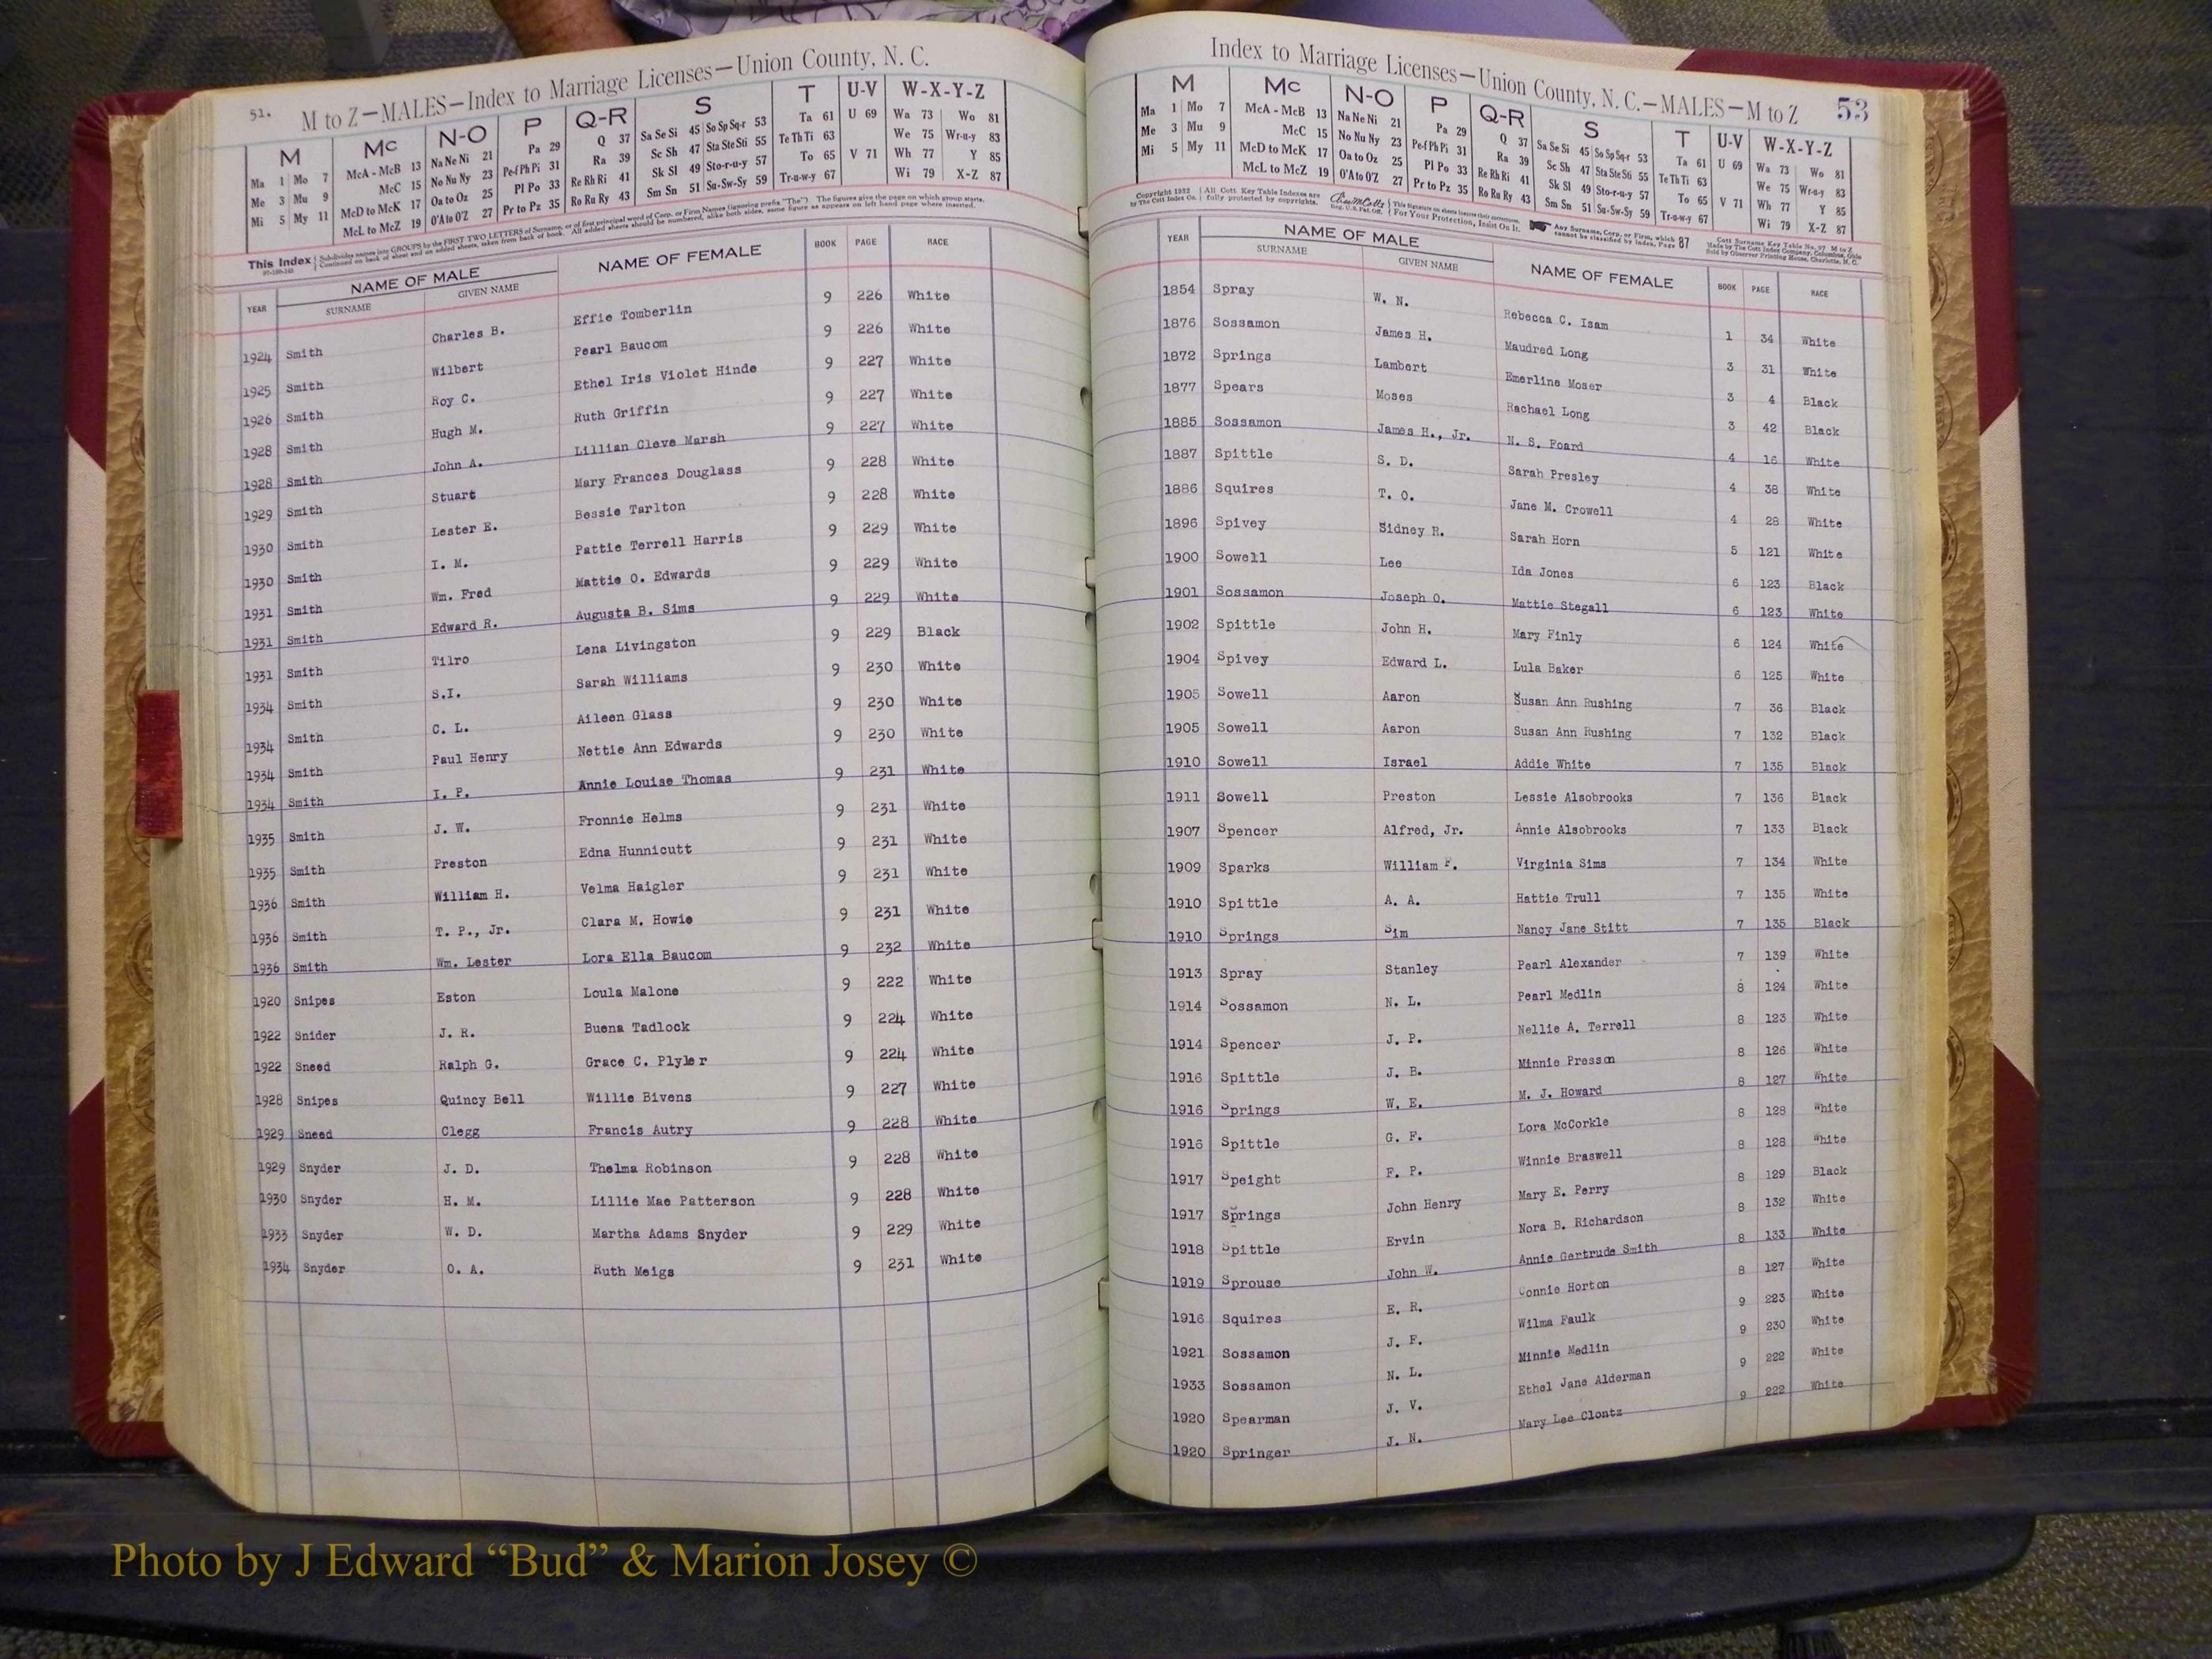 51.
M to Z—MALES—Index to Marriage Licenses—Union County, N. C.
M Mc N-O P Q-R S T U-V W-X-Y-Z
Ma 1 Mo 7 McA - McB 13 Na Ne Ni 21 Pa 29 Q 37 Sa Se Si 45 So Sp Sq-r 53 Ta 61 U 69 Wa 73 Wo 81
Me 3 Mu 9 McC 15 No Nu Ny 23 Pe-f Ph Pi 31 Ra 39 Sc Sh 47 Sta Ste Sti 55 Te Th Ti 63 We 75 Wr-u-y 83
Mi 5 My 11 McD to McK 17 Oa to Oz 25 Pl Po 33 Re Rh Ri 41 Sk Sl 49 Sto-r-u-y 57 To 65 V 71 Wh 77 Y 85
McL to McZ 19 O'A to O'Z 27 Pr to Pz 35 Ro Ru Ry 43 Sm Sn 51 Su-Sw-Sy 59 Tr-u-w-y 67 Wi 79 X-Z 87
This Index
Subdivides names into GROUPS by the FIRST TWO LETTERS of Surname, or of first principal word of Corp. or Firm Names (ignoring prefix "The"). The figures give the page on which group starts.
Continued on back of sheet and on added sheets, taken from back of book. All added sheets should be numbered, alike both sides, same figure as appears on left hand page where inserted.
YEAR NAME OF MALE NAME OF FEMALE BOOK PAGE RACE
SURNAME GIVEN NAME
1924 Smith Charles B. Effie Tomberlin 9 226 White
1925 Smith Wilbert Pearl Baucom 9 226 White
1926 Smith Roy C. Ethel Iris Violet Hinde 9 227 White
1928 Smith Hugh M. Ruth Griffin 9 227 White
1928 Smith John A. Lillian Cleve Marsh 9 227 White
1929 Smith Stuart Mary Frances Douglass 9 228 White
1930 Smith Lester E. Bessie Tarlton 9 228 White
1930 Smith I. M. Pattie Terrell Harris 9 229 White
1931 Smith Wm. Fred Mattie O. Edwards 9 229 White
1931 Smith Edward R. Augusta B. Sims 9 229 White
1931 Smith Tilro Lena Livingston 9 229 Black
1934 Smith S.I. Sarah Williams 9 230 White
1934 Smith C. L. Aileen Glass 9 230 White
1934 Smith Paul Henry Nettie Ann Edwards 9 230 White
1934 Smith I. P. Annie Louise Thomas 9 231 White
1935 Smith J. W. Fronnie Helms 9 231 White
1935 Smith Preston Edna Hunnicutt 9 231 White
1936 Smith William H. Velma Haigler 9 231 White
1936 Smith T. P., Jr. Clara M. Howie 9 231 White
1936 Smith Wm. Lester Lora Ella Baucom 9 232 White
1920 Snipes Eston Loula Malone 9 222 White
1922 Snider J. R. Buena Tadlock 9 224 White
1922 Sneed Ralph G. Grace C. Plyler 9 224 White
1928 Snipes Quincy Bell Willie Bivens 9 227 White
1929 Sneed Clegg Francis Autry 9 228 White
1929 Snyder J. D. Thelma Robinson 9 228 White
1930 Snyder H. M. Lillie Mae Patterson 9 228 White
1933 Snyder W. D. Martha Adams Snyder 9 229 White
1934 Snyder O. A. Ruth Meigs 9 231 White
Index to Marriage Licenses—Union County, N. C.—MALES—M to Z 53
M Mc N-O P Q-R S T U-V W-X-Y-Z
Ma 1 Mo 7 McA - McB 13 Na Ne Ni 21 Pa 29 Q 37 Sa Se Si 45 So Sp Sq-r 53 Ta 61 U 69 Wa 73 Wo 81
Me 3 Mu 9 McC 15 No Nu Ny 23 Pe-f Ph Pi 31 Ra 39 Sc Sh 47 Sta Ste Sti 55 Te Th Ti 63 We 75 Wr-u-y 83
Mi 5 My 11 McD to McK 17 Oa to Oz 25 Pl Po 33 Re Rh Ri 41 Sk Sl 49 Sto-r-u-y 57 To 65 V 71 Wh 77 Y 85
McL to McZ 19 O'A to O'Z 27 Pr to Pz 35 Ro Ru Ry 43 Sm Sn 51 Su-Sw-Sy 59 Tr-u-w-y 67 Wi 79 X-Z 87
Copyright 1932 by The Cott Index Co. All Cott Key Table Indexes are fully protected by copyrights. For Your Protection, Insist On It. Any Surname, Corp. or Firm, which cannot be classified by Index, Page 87
Cott Surname Key Table No. 97 M to Z
Made by The Cott Index Company, Columbus, Ohio
Sold by Observer Printing House, Charlotte, N. C.
YEAR NAME OF MALE NAME OF FEMALE BOOK PAGE RACE
SURNAME GIVEN NAME
1854 Spray W. N. Rebecca C. Isam 1 34 White
1876 Sossamon James H. Maudred Long 3 31 White
1872 Springs Lambert Emerline Moser 3 4 Black
1877 Spears Moses Rachael Long 3 42 Black
1885 Sossamon James H., Jr. N. S. Foard 4 16 White
1887 Spittle S. D. Sarah Presley 4 38 White
1886 Squires T. O. Jane M. Crowell 4 28 White
1896 Spivey Sidney R. Sarah Horn 5 121 White
1900 Sowell Lee Ida Jones 6 123 Black
1901 Sossamon Joseph O. Mattie Stegall 6 123 White
1902 Spittle John H. Mary Finly 6 124 White
1904 Spivey Edward L. Lula Baker 6 125 White
1905 Sowell Aaron Susan Ann Rushing 7 36 Black
1905 Sowell Aaron Susan Ann Rushing 7 132 Black
1910 Sowell Israel Addie White 7 135 Black
1911 Sowell Preston Lessie Alsobrooks 7 136 Black
1907 Spencer Alfred, Jr. Annie Alsobrooks 7 133 Black
1909 Sparks William F. Virginia Sims 7 134 White
1910 Spittle A. A. Hattie Trull 7 135 White
1910 Springs Sim Nancy Jane Stitt 7 135 Black
1913 Spray Stanley Pearl Alexander 7 139 White
1914 Sossamon N. L. Pearl Medlin 8 124 White
1914 Spencer J. P. Nellie A. Terrell 8 123 White
1916 Spittle J. B. Minnie Presson 8 126 White
1916 Springs W. E. M. J. Howard 8 127 White
1916 Spittle G. F. Lora McCorkle 8 128 White
1917 Speight F. P. Winnie Braswell 8 128 White
1917 Springs John Henry Mary E. Perry 8 129 Black
1918 Spittle Ervin Nora B. Richardson 8 132 White
1919 Sprouse John W. Annie Gertrude Smith 8 133 White
1916 Squires E. R. Connie Horton 8 127 White
1921 Sossamon J. F. Wilma Faulk 9 223 White
1933 Sossamon N. L. Minnie Medlin 9 230 White
1920 Spearman J. V. Ethel Jane Alderman 9 222 White
1920 Springer J. N. Mary Lee Clontz 9 222 White
Photo by J Edward “Bud” & Marion Josey ©